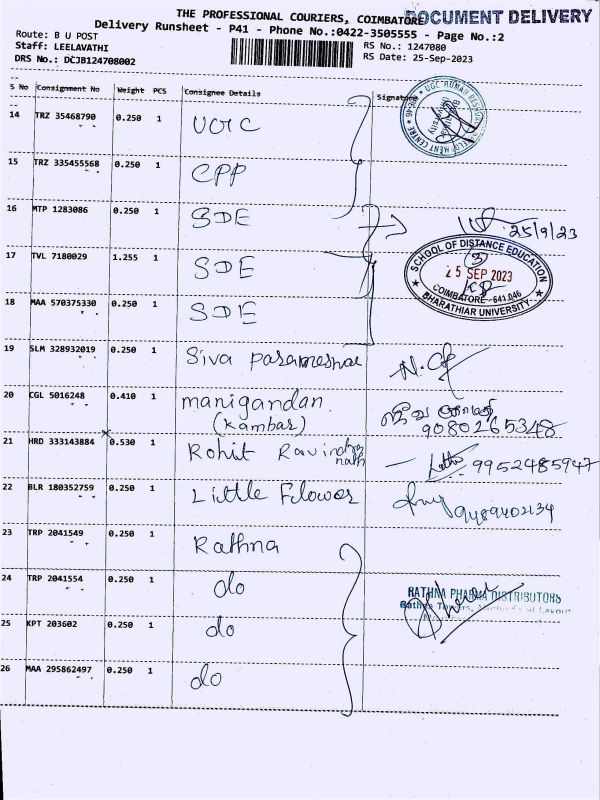 THE PROFESSIONAL COURIERS, COIMBATORE
DOCUMENT DELIVERY
Delivery Runsheet - P41 - Phone No.:0422-3505555 - Page No.:2
Route: B U POST
RS No.: 1247080
Staff: LEELAVATHI
RS Date: 25-Sep-2023
DRS No.: DCJB124708002
S No Consignment No Weight PCS Consignee Details Signature
14 TRZ 35468790 0.250 1 UGC
15 TRZ 335455568 0.250 1 CPP
16 MTP 1283086 0.250 1 SDE
25/9/23
17 TVL 7180029 1.255 1 SDE
SCHOOL OF DISTANCE EDUCATION
25 SEP 2023
COIMBATORE - 641 046
BHARATHIAR UNIVERSITY
18 MAA 570375330 0.250 1 SDE
19 SLM 328932019 0.250 1 Siva Parameshwar
20 CGL 5016248 0.410 1 manigandan
(Kambar)
9080265348
21 HRD 333143884 0.530 1 Rohit Ravindra
nath
9952485947
22 BLR 180352759 0.250 1 Little Flower
9489402134
23 TRP 2041549 0.250 1 Rathna
24 TRP 2041554 0.250 1 do
RATHNA PHARMA DISTRIBUTORS
Rathna Towers,
25 KPT 203602 0.250 1 do
26 MAA 295862497 0.250 1 do